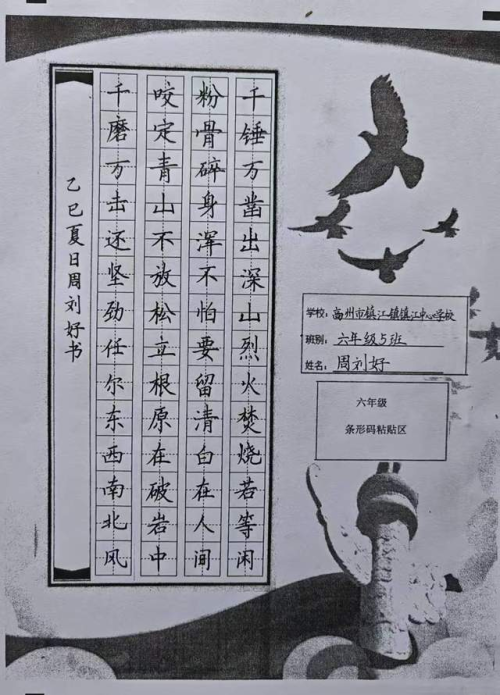 千锤万凿出深山烈火焚烧若等闲
粉骨碎身浑不怕要留清白在人间
咬定青山不放松立根原在破岩中
千磨万击还坚劲任尔东西南北风
乙巳夏日周刘好书
学校：高州市镇江镇镇江中心学校
班别：六年级5班
姓名：周刘好
六年级
条形码粘贴区